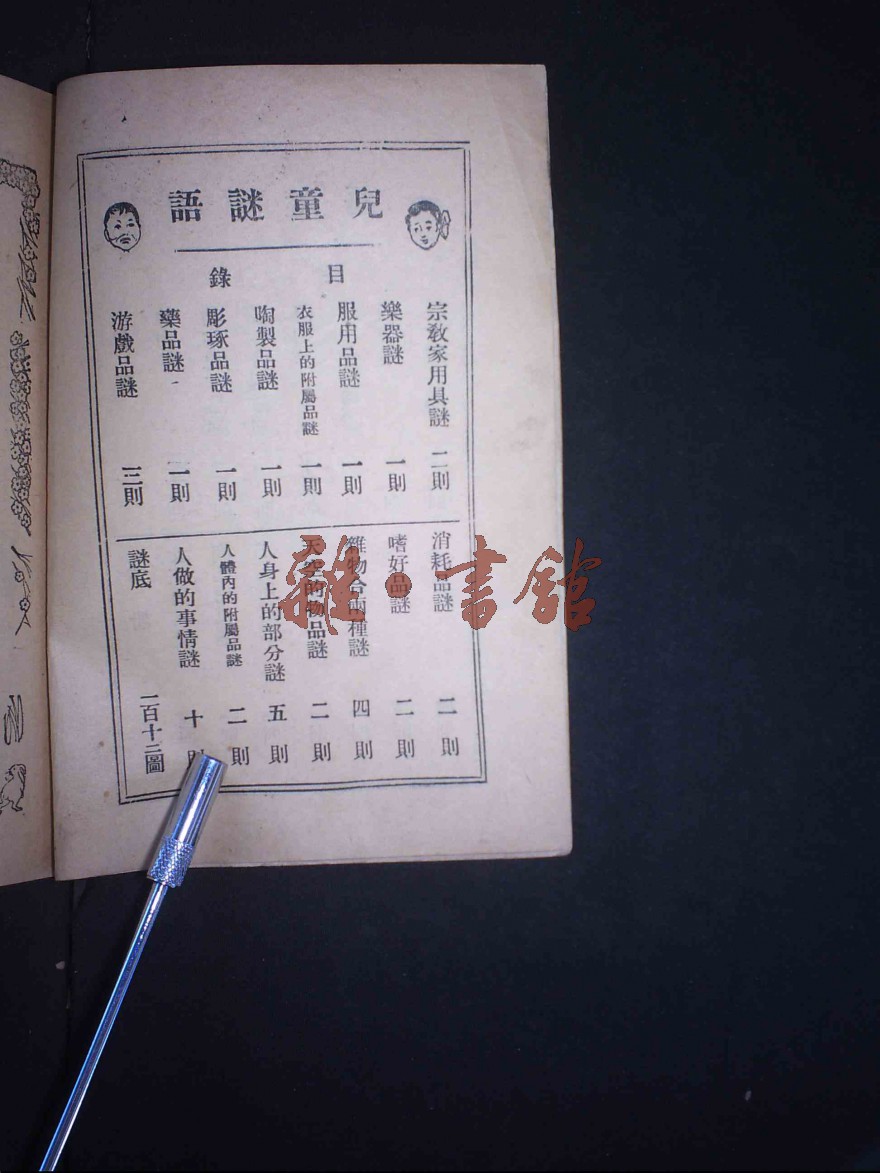 兒童謎語
目錄
宗教家用具謎 二則
樂器謎 一則
服用品謎 一則
衣服上的附屬品謎 一則
陶製品謎 一則
彫琢品謎 一則
藥品謎 一則
游戲品謎 三則
消耗品謎 二則
嗜好品謎 二則
雜物合兩種謎 四則
天空的物品謎 二則
人身上的部分謎 五則
人體內的附屬品謎 二則
人做的事情謎 十則
謎底 二百十二圖
雜·書館